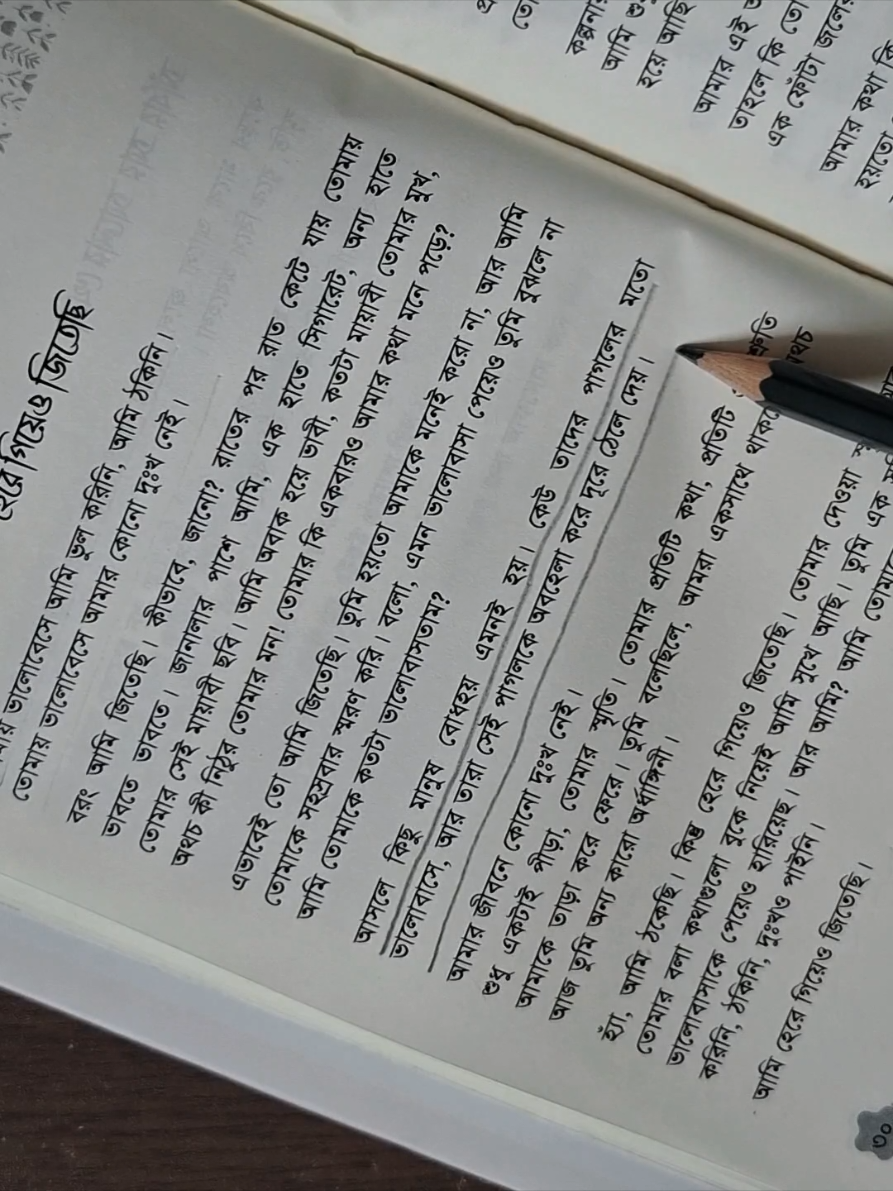 হেরে গিয়েও জিতেছি
তোমায় ভালোবেসে আমি ভুল করিনি, আমি ঠকিনি।
তোমায় ভালোবেসে আমার কোনো দুঃখ নেই।
বরং আমি জিতেছি। কীভাবে, জানো? রাতের পর রাত কেটে যায় তোমায়
ভাবতে ভাবতে। জানালার পাশে আমি, এক হাতে সিগারেট, অন্য হাতে
তোমার সেই মায়াবী ছবি। আমি অবাক হয়ে ভাবী, কতটা মায়াবী তোমার মুখ,
অথচ কী নিঠুর তোমার মন! তোমার কি একবারও আমার কথা মনে পড়ে?
এভাবেই তো আমি জিতেছি। তুমি হয়তো আমাকে মনেই করো না, আর আমি
তোমাকে সহস্রবার স্মরণ করি। বলো, এমন ভালোবাসা পেয়েও তুমি বুঝলে না
আমি তোমাকে কতটা ভালোবাসতাম?
আসলে কিছু মানুষ বোধহয় এমনই হয়। কেউ তাদের পাগলের মতো
ভালোবাসে, আর তারা সেই পাগলকে অবহেলা করে দূরে ঠেলে দেয়।
আমার জীবনে কোনো দুঃখ নেই।
শুধু একটাই পীড়া, তোমার স্মৃতি। তোমার প্রতিটি কথা, প্রতিটি
আমাকে তাড়া করে ফেরে। তুমি বলেছিলে, আমরা একসাথে
আজ তুমি অন্য কারো অর্ধাঙ্গিনী।
হ্যাঁ, আমি ঠকেছি। কিন্তু হেরে গিয়েও জিতেছি। তোমার দেওয়া
তোমার বলা কথাগুলো বুকে নিয়েই আমি সুখে আছি। তুমি এক
ভালোবাসাকে পেয়েও হারিয়েছ। আর আমি? আমি
করিনি, ঠকিনি, দুঃখও পাইনি।
আমি হেরে গিয়েও জিতেছি।
আমি
হয়ে আছি
আমার এই
তাহলে কি
এক ফোঁটা জলের
আমার কথা কি
হয়তো